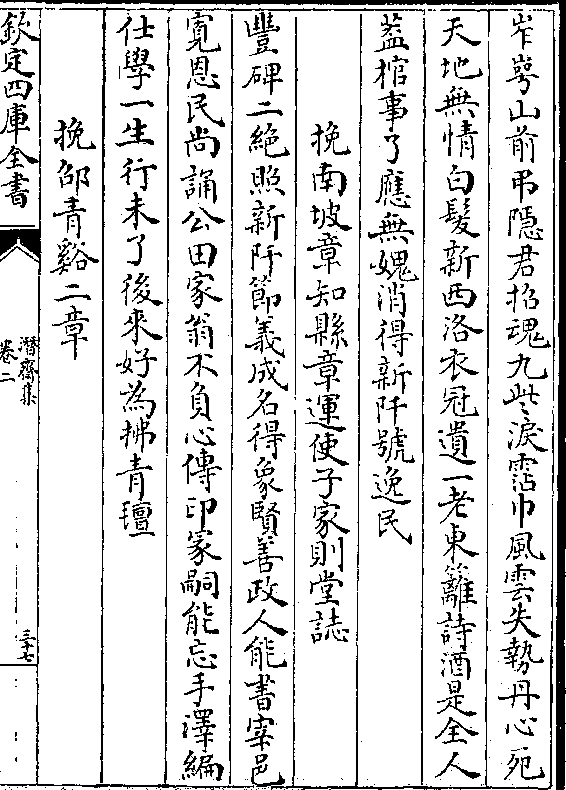 岝崿山前弔隱君招魂九些淚霑巾風雲失勢丹心死
天地無情白髪新西洛衣冠遺一老東籬詩酒是全人
葢棺事了應無媿消得新阡號逸民
挽南坡章知縣章運使子家則堂誌
豐碑二絶照新阡節義成名得象賢善政人能書宰邑
寛恩民尚誦公田家翁不負心傳印冢嗣能忘手澤編
仕學一生行未了後來好為拂青氊
挽邵青谿二章
欽定四庫全書
潛齋集
卷二
三十七